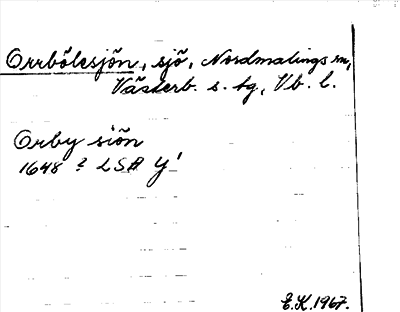 Orrbölesjön, sjö, Nordmalings sn,
Västerb. s. tg, Vb. l.
Orby siön
1648 ? LSA Y 1
E.K. 1967.